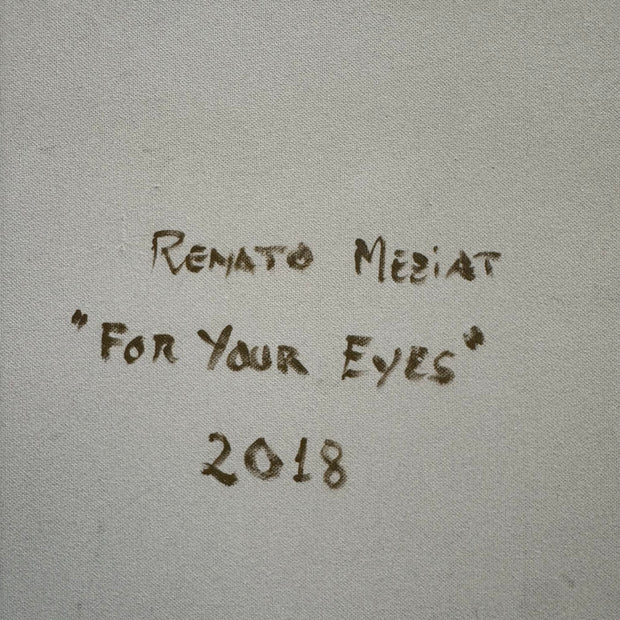 RENATO MEZIAT
"FOR YOUR EYES"
2018